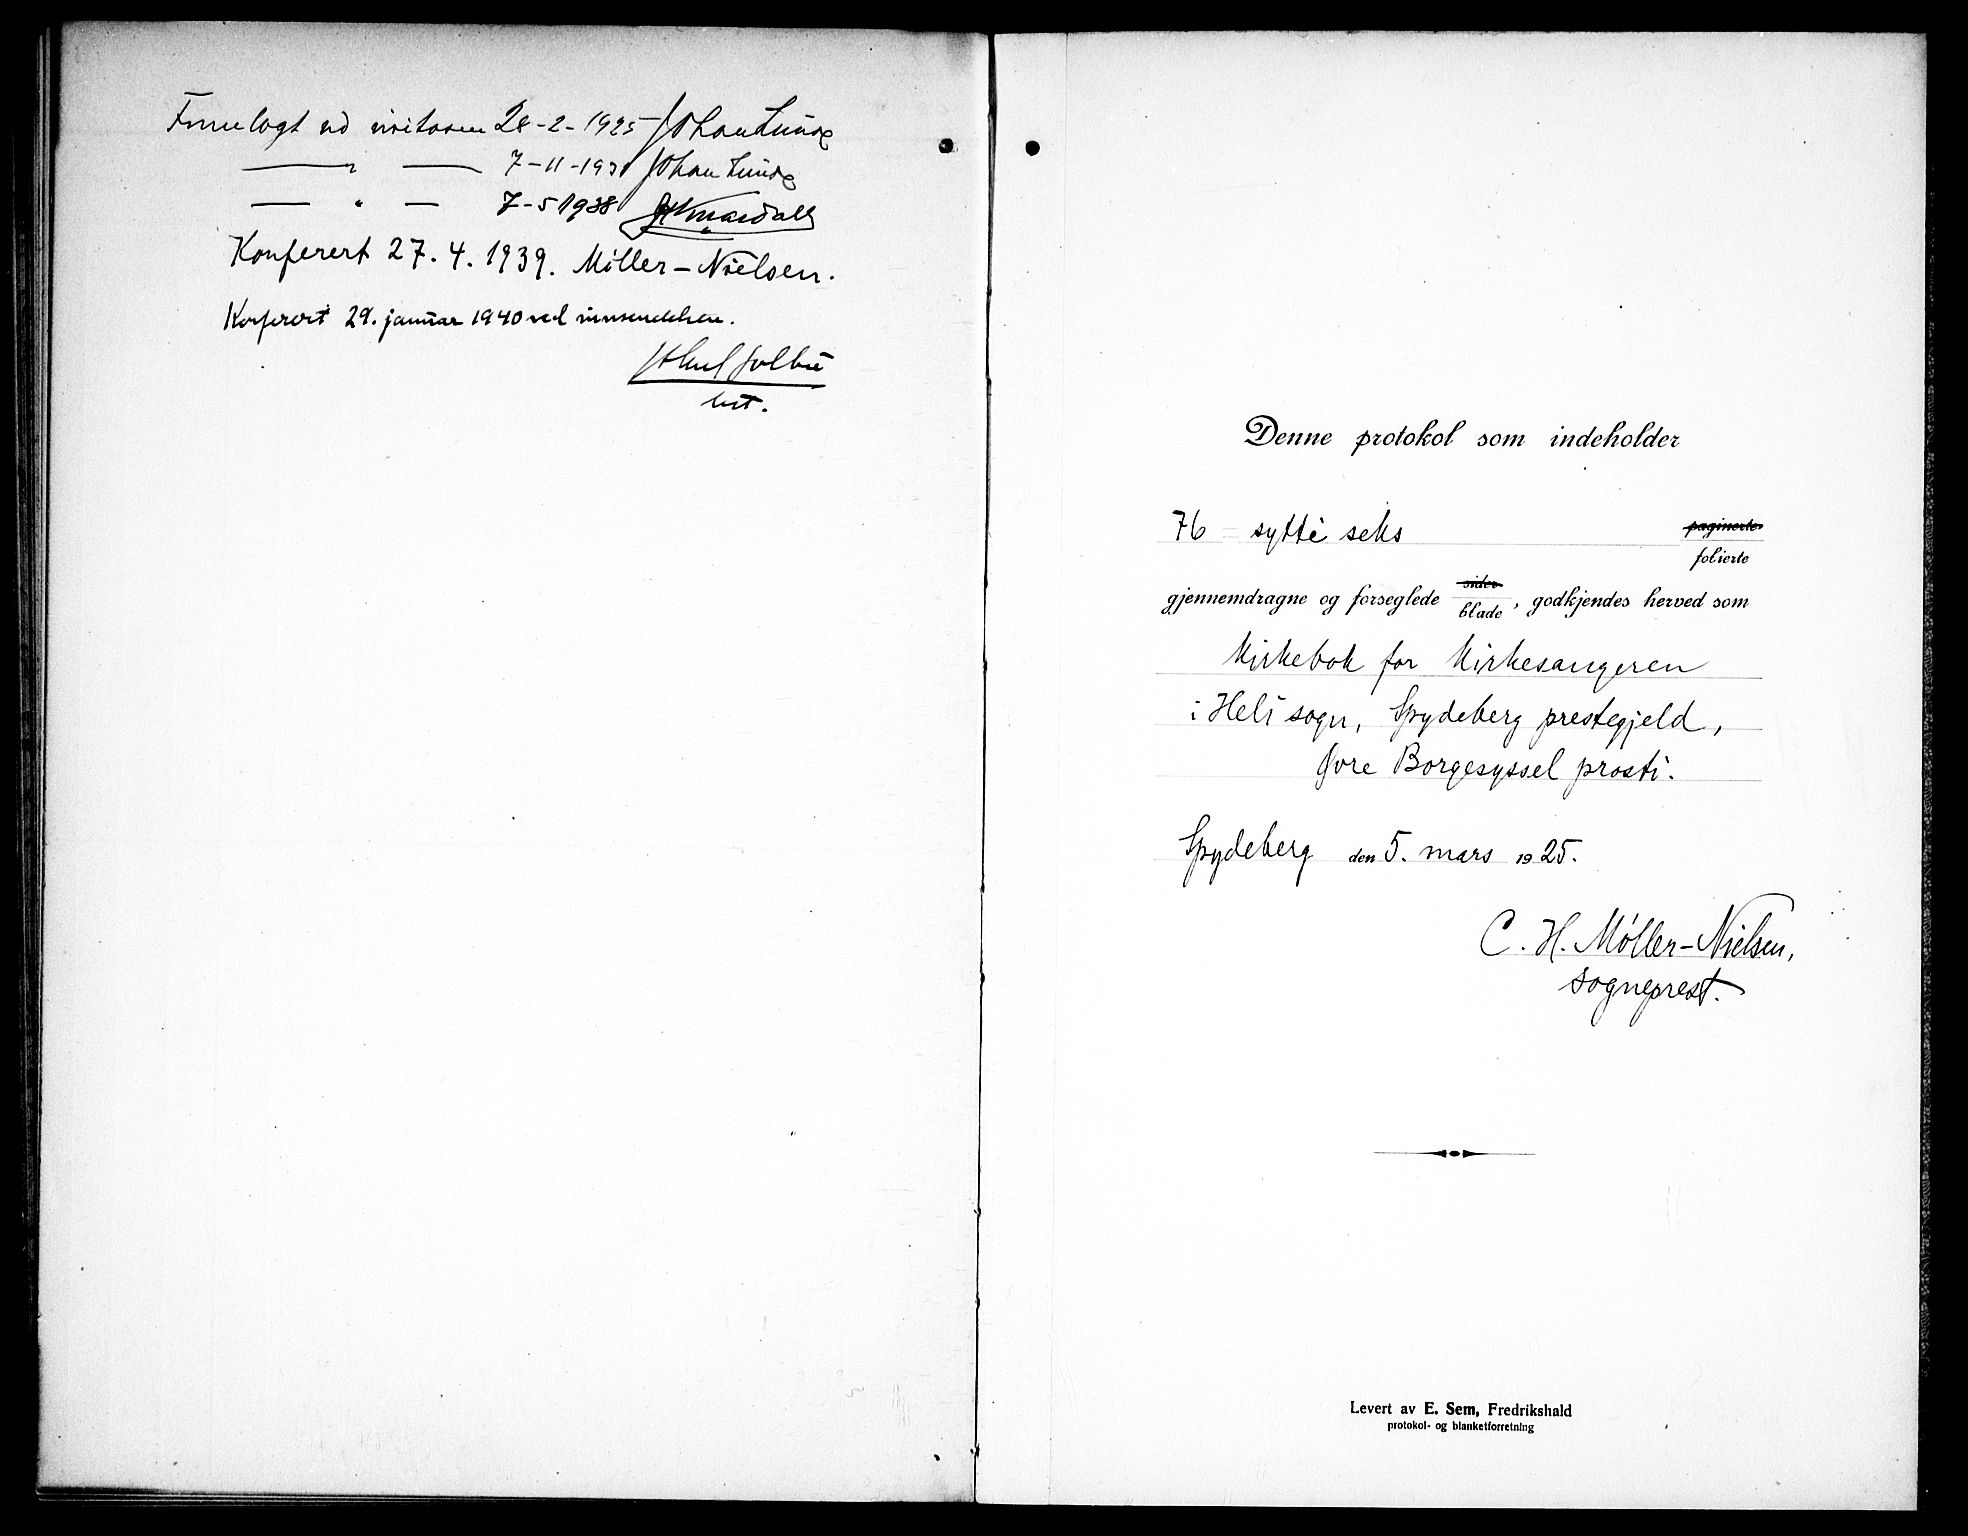 Forelagt ved visitasen 28-2-1925 Johan Lunde
— " — 7-11-1931 Johan Lunde
— " — 7-5 1938
Konferert 27.4.1939. Möller-Nielsen.
Konferert 29. januar 1940 ved innsendelsen.
Denne protokol som indeholder
76 = sytti seks paginerte
folierte
gjennemdragne og forseglede sider blade, godkjendes herved som
Kirkebok for Kirkesangeren
i Heli sogn, Spydeberg prestegjeld,
Øvre Borgesyssel prosti.
Spydeberg den 5. mars 1925.
C. H. Møller-Nielsen,
sogneprest.
Levert av E. Sem, Fredrikshald
protokol- og blanketforretning